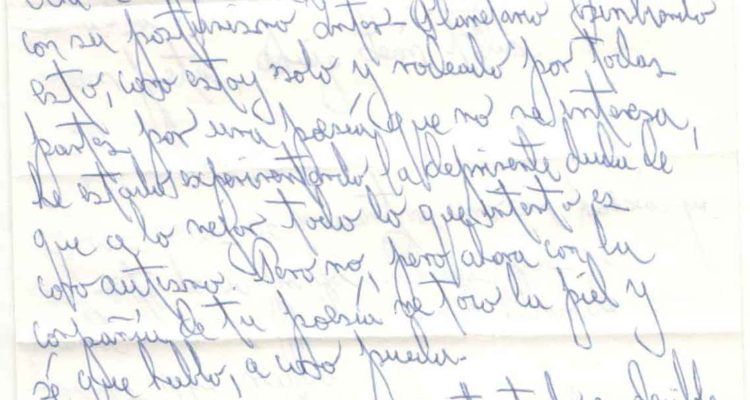 con su posturismo Inter-Planetario
esto, como estoy solo y rodeado por todas
partes por una poesía que no me interesa,
he estado experimentando la deprimente duda de
que a lo mejor todo lo que intento es
como autismo. Pero no, pero ahora con la
compañía de tu poesía me toco la piel y
sé que hablo, a como pueda.